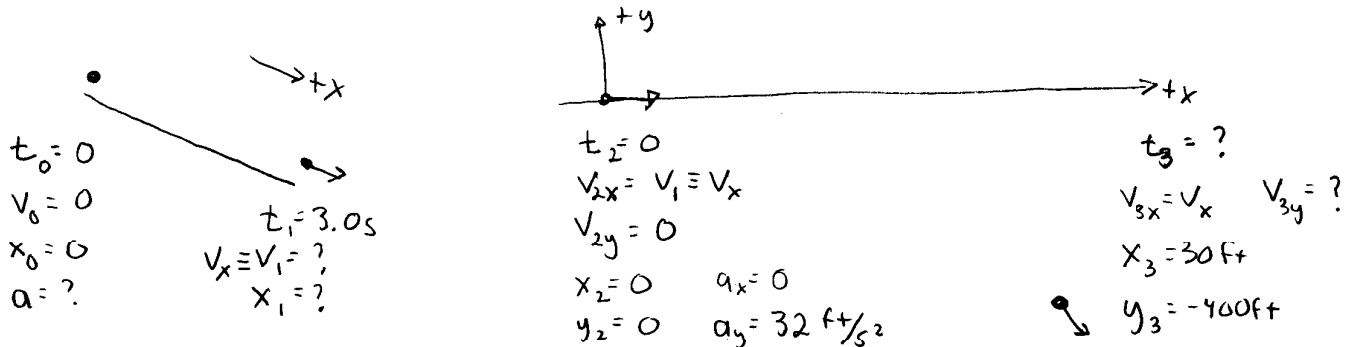 +y
+x
+x
t₀ = 0
v₀ = 0
x₀ = 0
a = ?
t₁ = 3.0s
vₓ ≡ v₁ = ?
x₁ = ?
t₂ = 0
v₂ₓ = v₁ ≡ vₓ
v₂y = 0
x₂ = 0 aₓ = 0
y₂ = 0 ay = 32 ft/s²
t₃ = ?
v₃ₓ = vₓ v₃y = ?
x₃ = 30 ft
y₃ = -400ft